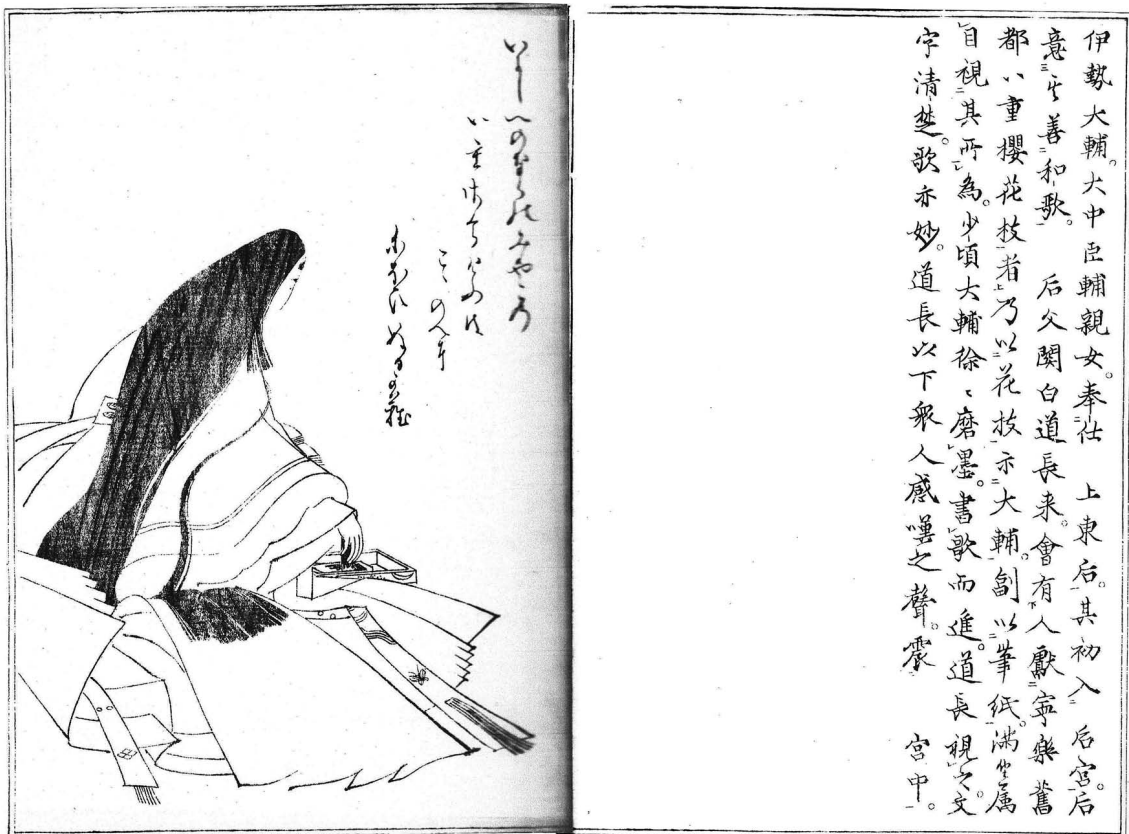 伊勢大輔。大中臣輔親女。奉仕　上東后。其初入　后宮。后
意其善和歌。　后父関白道長来。會有人獻寧樂舊
都八重櫻花枝者。乃以花枝示大輔。副以筆紙。満坐属
目視其所為。少頃大輔徐々磨墨。書歌而進。道長視之文
字清楚。歌亦妙。道長以下衆人感嘆之聲。震　宮中。
いにしへのならのみやこの
八重さくらけふ
こゝのへに
にほひぬるかな